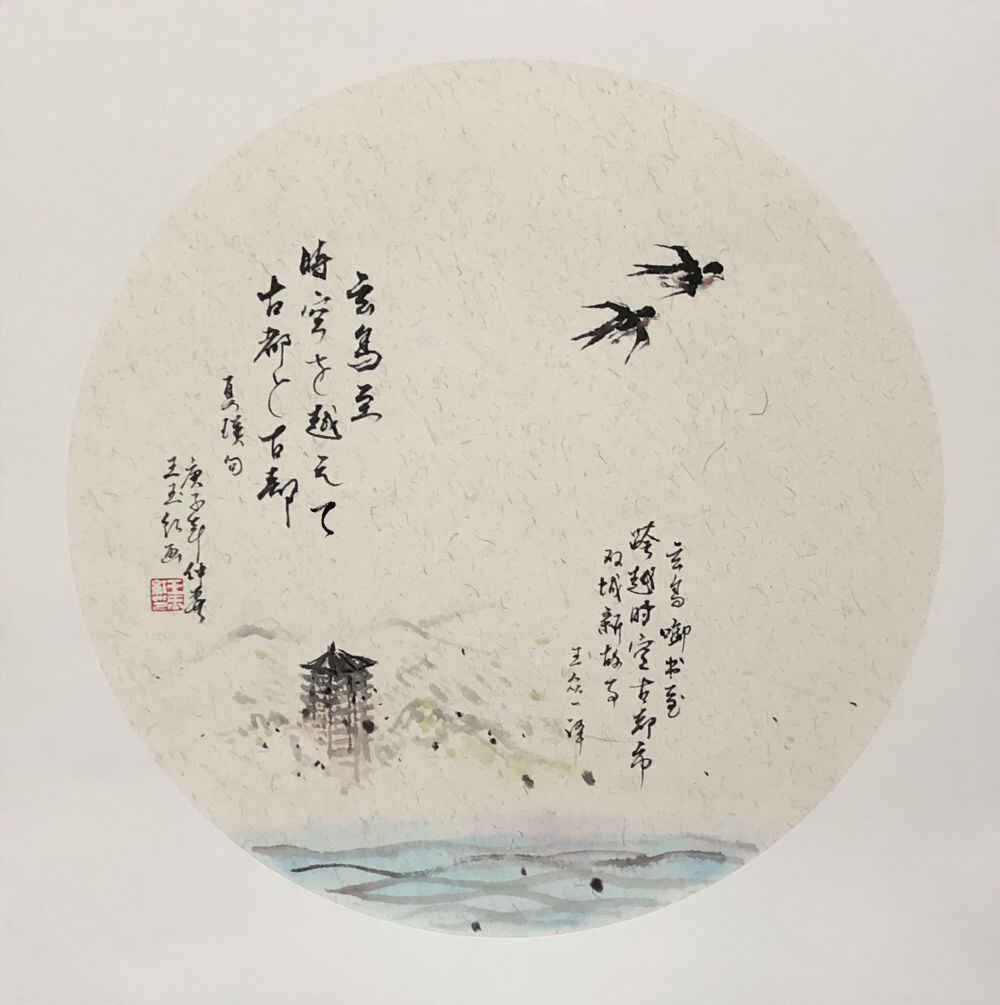 玄鳥至
時空を越えて
古都と古都
夏瑛句
庚子年仲春
王玉红画
玄鸟啣书至
跨越时空古都市
双城新故事
王众一译